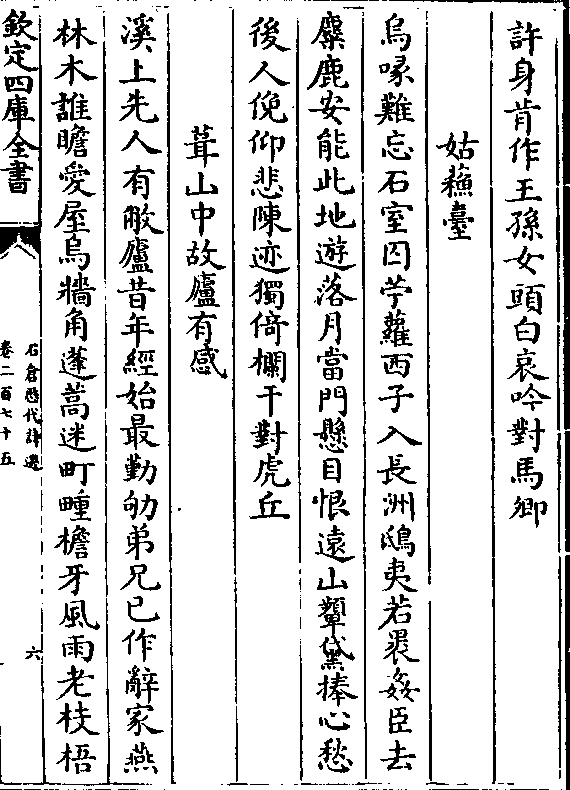 許身肯作王孫女頭白哀吟對馬卿
姑蘓臺
烏喙難忘石室囚苧蘿西子入長洲鴟夷若裹姦臣去
麋鹿安能此地遊落月當門懸目恨遠山顰黛捧心愁
後人俛仰悲陳迹獨倚欄干對虎丘
葺山中故廬有感
溪上先人有敝廬昔年經始最勤劬弟兄已作辭家燕
林木誰瞻愛屋烏牆角蓬蒿迷町畽檐牙風雨老枝梧
欽定四庫全書
石倉歷代詩選
卷二百七十五
六